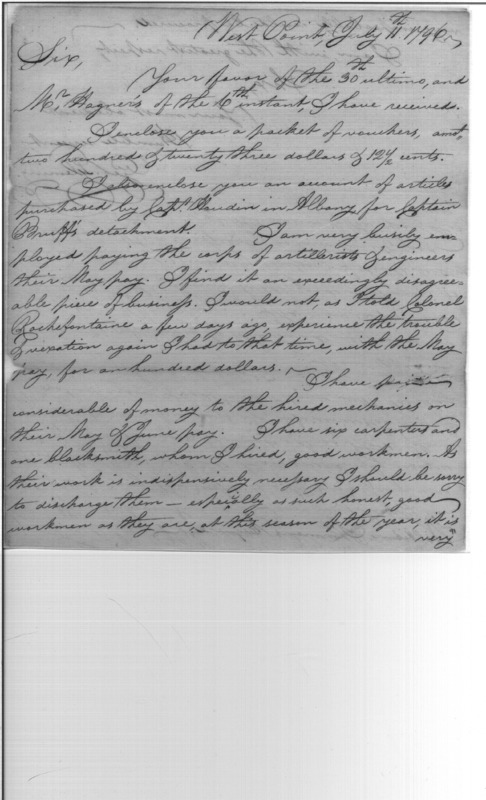 West Point, July 11th 1796.
Sir,
Your favor of the 30th ultimo, and
Mr. Hagner's of the 6th instant I have received.
I enclose you a packet of vouchers, amt,
two hundred & twenty three dollars & 12 1/2 cents.
I also enclose you an account of articles
purchased by Capt. in Albany for Captain
Bruff's detachment. I am very busily em-
ployed paying the corps of artillerists & engineers
their May pay. I find it an exceedingly disagree-
able piece of business. I would not, as I told Colonel
Rochefontaine a few days ago, experience the trouble
& vexation again I had to that time, with the May
pay, for an hundred dollars.
I have paid
considerable of money to the hired mechanics on
their May & June pay. I have six carpenters and
one blacksmith, whom I hired, good workmen. As
their work is indispensively necessary I should be sorry
to discharge them — especially as such honest, good
workmen as they are, at this season of the year, it is
very